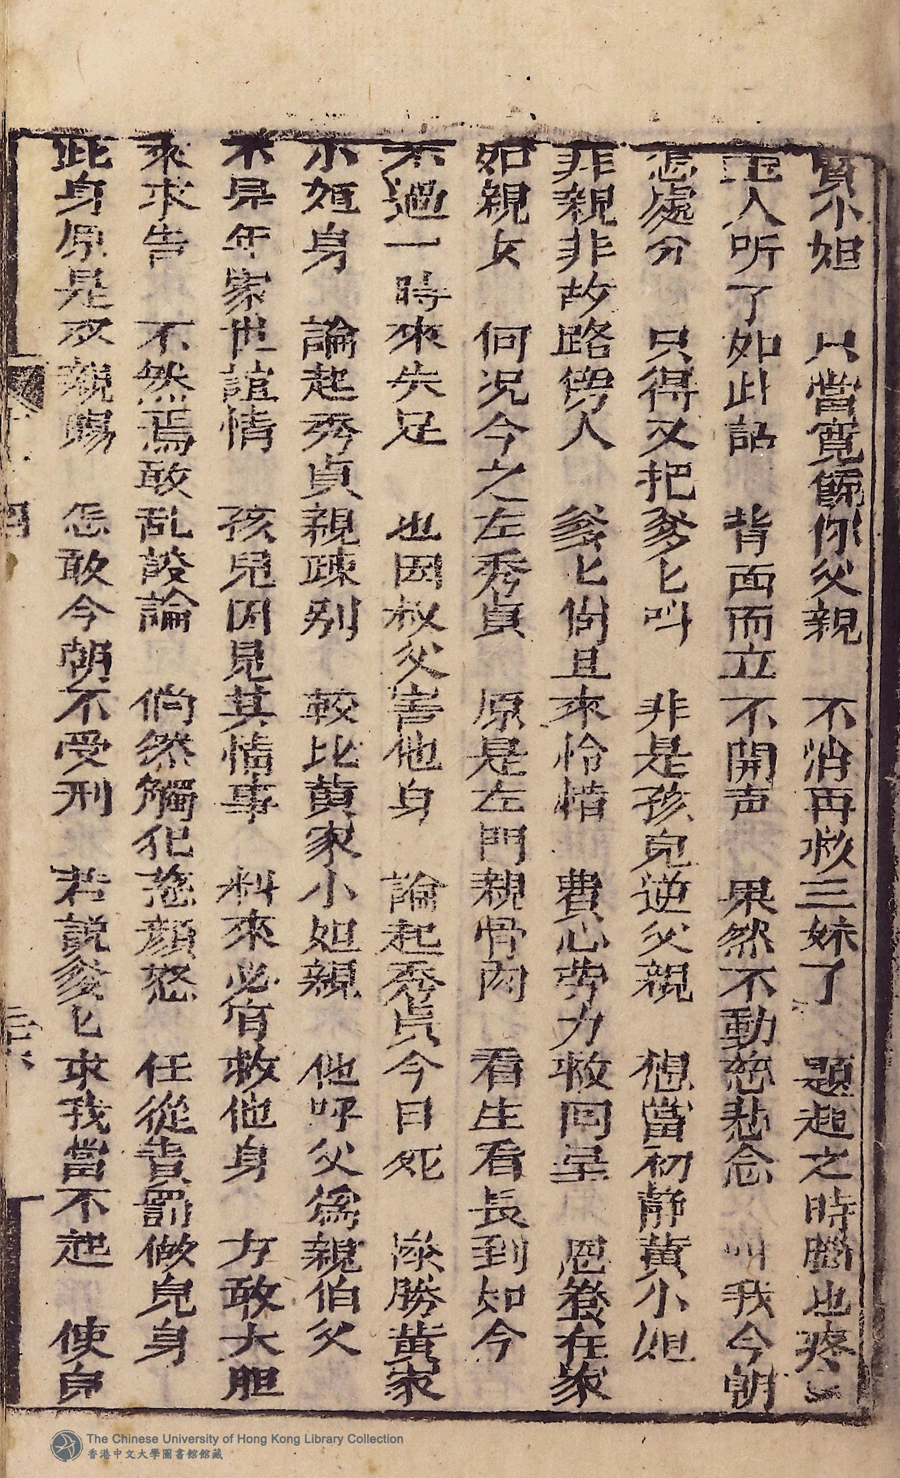 賢小姐　只當寬饒你父親　不消再救三妹了　題起之時腦也疼
玉人听了如此話　背面而立不開声　果然不動慈悲念　叫我今朝
怎處分　只得又把爹匕叫　非是孩兒逆父親　想當初静黄小姐
非親非故路傍人　爹匕尙且來怜惜　費心劳力救回呈　恩養在家
如親女　何况今之左秀貞　原是左門親骨肉　看生看長到如今
不過一時來失足　也因叔父害他身　論起秀貞今日死　勝黄家
小姐身　論起秀貞親疎别　較比黄家小姐親　他呼父爲親伯父
不是年家世誼情　孩兒因見其情事　料來必宥救他身　方敢大胆
來求告　不然焉敢乱談論　倘然觸犯慈顔怒　任從責罰做兒身
此身原是双親賜　怎敢今朝不受刑　若説爹匕求我當不起　使自
四
The Chinese University of Hong Kong Library Collection
香港中文大學圖書館館藏